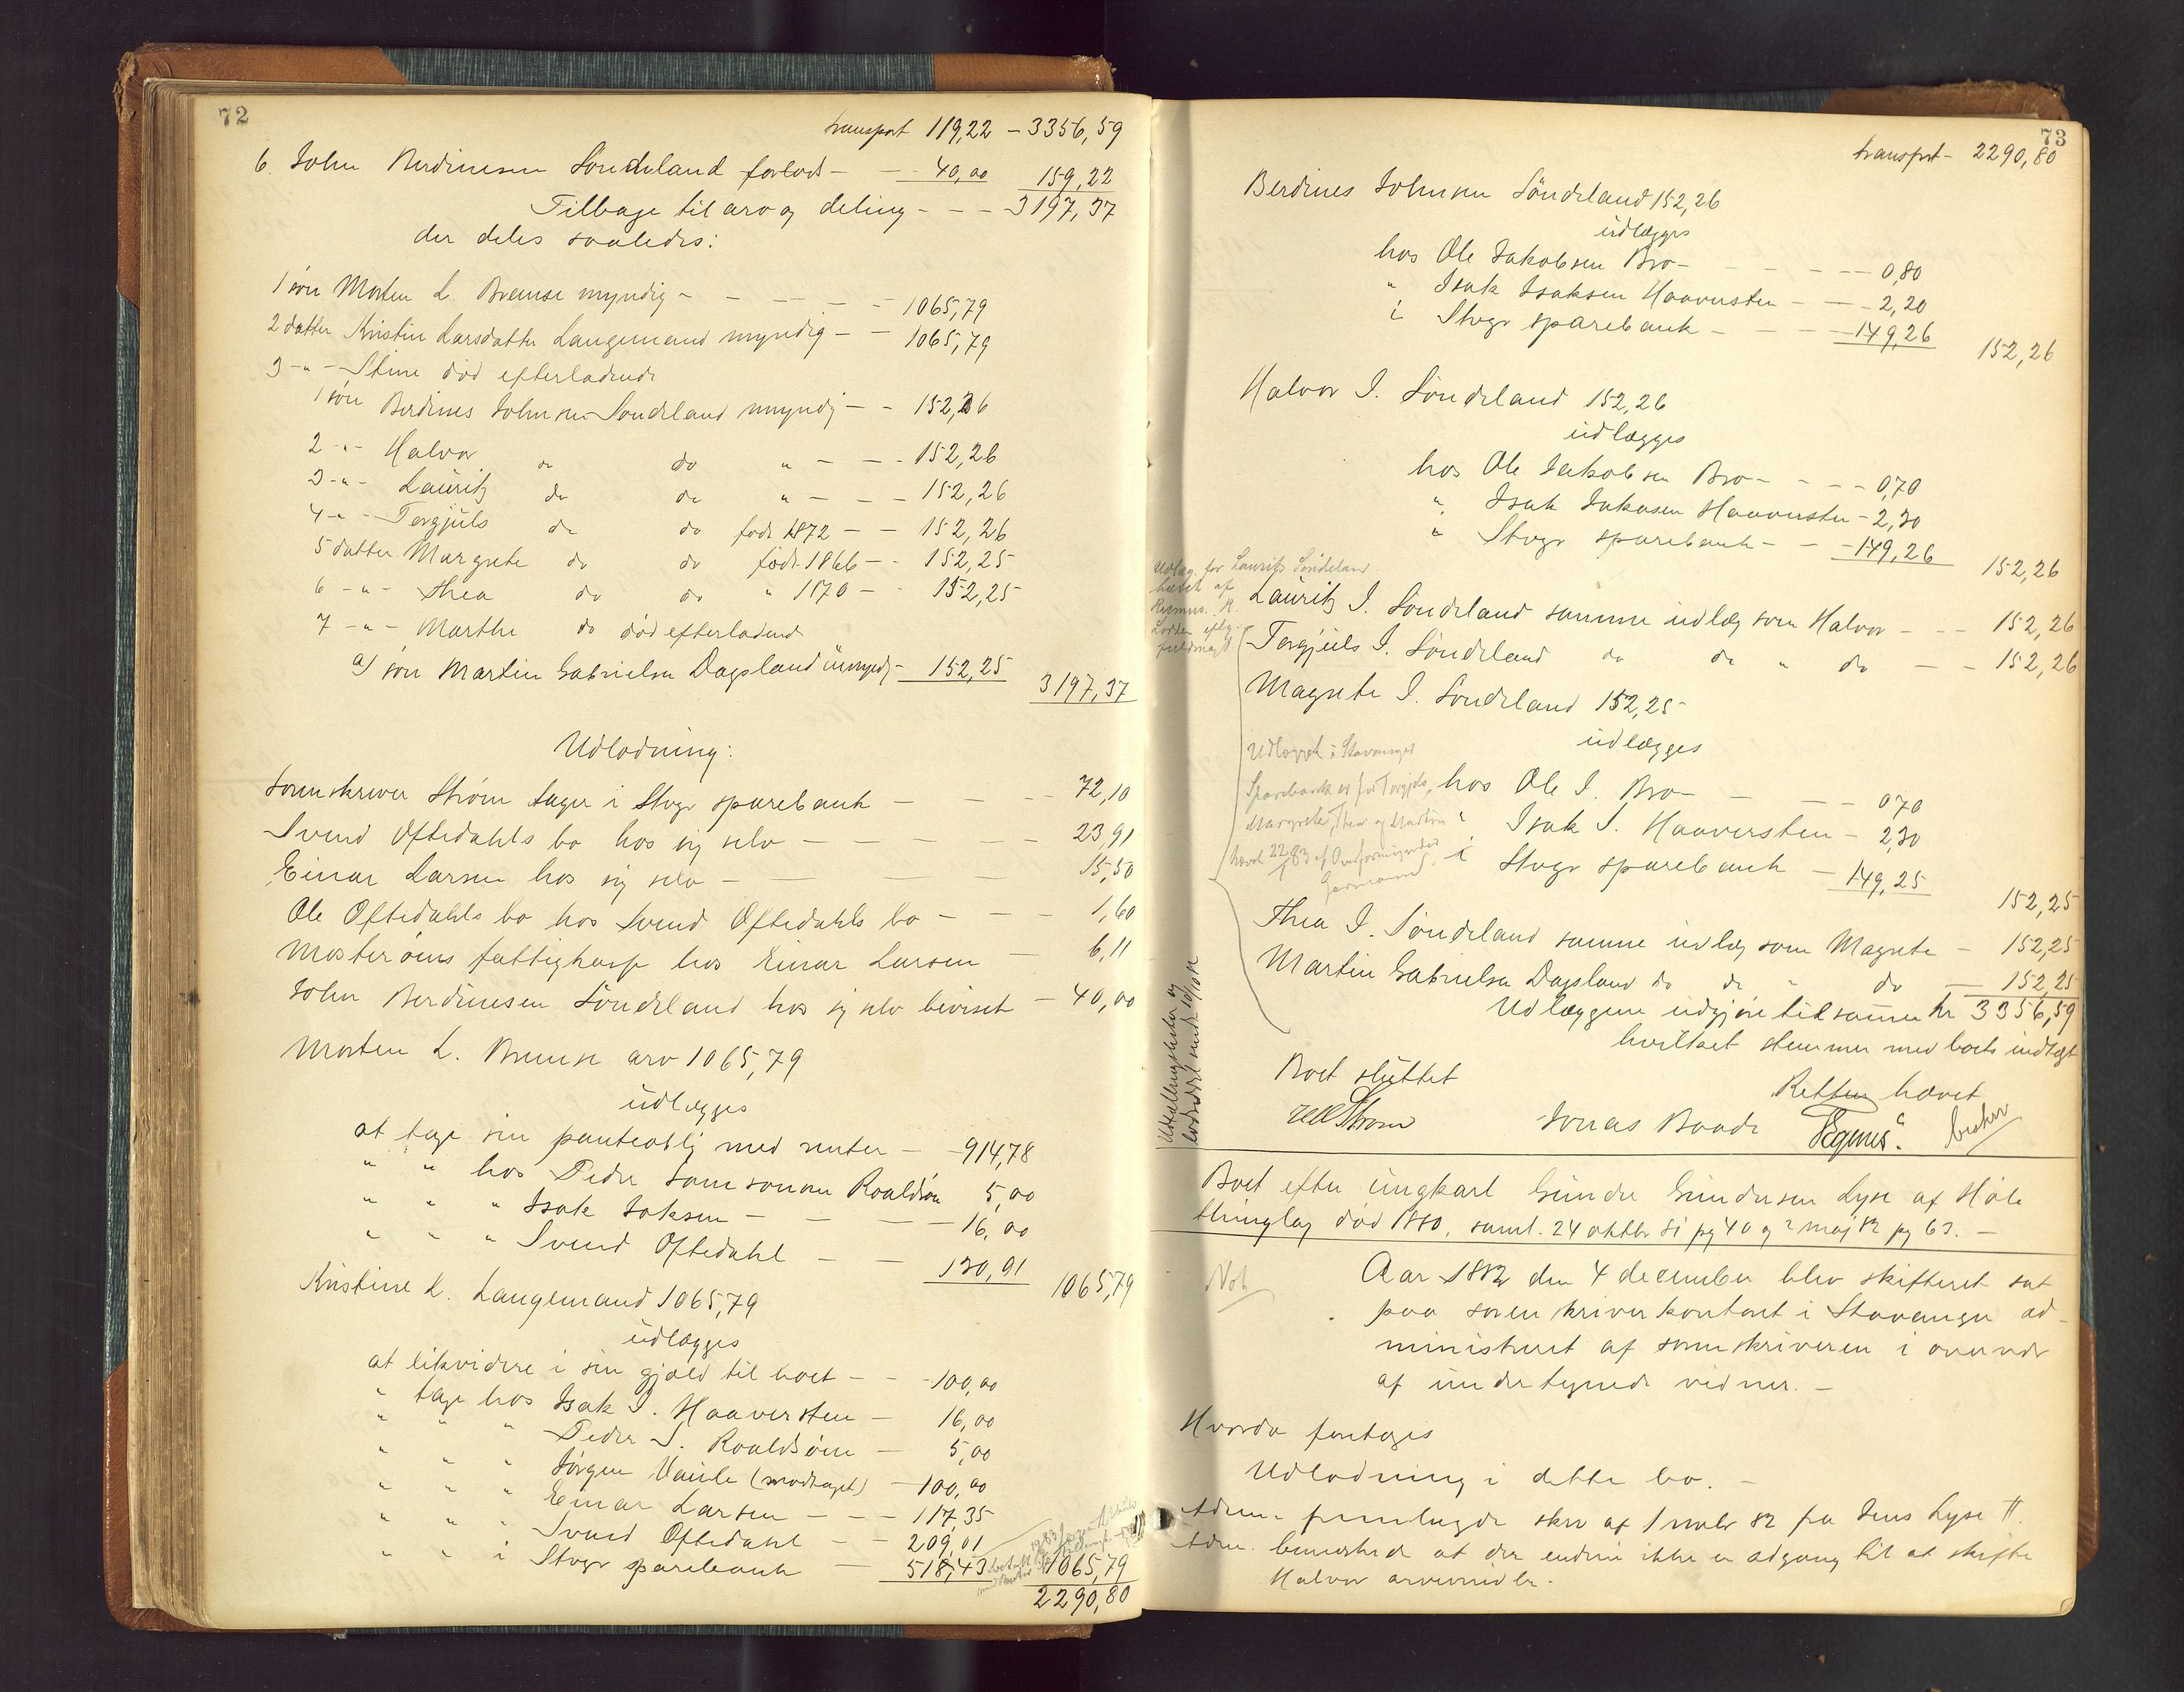 72
transport 119,22 – 3356,59
6. John Berdinesen Sönderland forlods – – 40,00 159,22
Tilbage til arv og deling – – – 3197,37
der deles saaledes:
1 sön Morten L. Bremse myndig – – – – – 1065,79
2 datter Kristin Larsdatter Langemand myndig – – 1065,79
3 –"– Stine död efterladende
1 sön Berdines Johnsen Sönderland myndig – – 152,26
2 –"– Halvor do do " – – – 152,26
3 –"– Lauritz do do " – – – 152,26
4 –"– Torgjuls do do födt 1872 – – 152,26
5 datter Margrete do do födt 1866 – – 152,25
6 –"– Thea do do " 1870 – – 152,25
7 –"– Marthe do död efterladende
a) sön Martin Gabrielsen Dagsland umyndig – 152,25
3197,37
Udlodning:
Sorenskriver Ström tager i Stvgr sparebank – – – – 72,10
Svend Oftedahls bo hos sig selv – – – – – 23,91
Einar Larsen hos sig selv – – – – 15,50
Ole Oftedahls bo hos Svend Oftedahls bo – – – 1,60
Mosteröens fattigkasse hos Einar Larsen – 6,11
John Berdinesen Sönderland hos sig selv beviset – 40,00
Morten L. Bremse arv 1065,79
udlægges
at tage sin panteoblig med renter – – 914,78
" " hos Peder Samsonsen Roaldsöen 5,00
" " " Isak Isaksen – – – – 16,00
" " " Svend Oftedahl – – 130,01
1065,79
Kristine L. Langemand 1065,79
udlægges
at likvidere i sin gjæld til boet – – 100,00
" tage hos Isak I. Haaversten – 16,00
" " " Peder S. Roaldsöen – 5,00
" " " Jörgen Vaule (modtaget) – 100,00
" " " Einar Larsen – – – 117,35
" " " Svend Oftedahl – – 209,01
" " i Stvgr sparebank – 518,43 1065,79
2290,80
73
transport – 2290,80
Berdines Johnsen Sönderland 152,26
udlægges
hos Ole Jakobsen Bro – – – – – – 0,80
" Isak Isaksen Haaversten – – – 2,20
i Stvgr sparebank – – – – 149,26
152,26
Halvor I. Sönderland 152,26
udlægges
hos Ole Jakobsen Bro – – – – 0,70
" Isak Isaksen Haaversten – 2,30
" Stvgr sparebank – – – 149,26
152,26
Udlæg for Lauritz Sönderland
hævet af
Rasmus R.
Lauritz I. Sönderland samme udlæg som Halvor – – – 152,26
Torgjuls I. Sönderland do do " do – – 152,26
Magrete I. Sönderland 152,25
udlægges
Udlægget i Stavanger
Sparebank er for Torgjuls,
Margrete, Thea og Martin
hævet 22/83 af Overformynder
hos Ole I. Bro – – – – 0,70
" Isak I. Haaversten – 2,30
i Stvgr sparebank – 149,25
152,25
Thea I. Sönderland samme udlæg som Magrete – 152,25
Martin Gabrielsen Dagsland do do " do – 152,25
Udlæggene udgjöre tilsammen kr 3356,59
hvilket stemmer med boets indtægt
Boet sluttet
Retten hævet
Ström Jonas Baade
Boet efter ungkarl Gunder Gundersen Lyse af Höle
thinglag död 1880, saml. 24 oktbr 81 pg 40 og 2 maj 82 pg 63. –
Not.
Aar 1882 den 4 december blev skifteret sat
paa sorenskriverkontoret i Stavanger ad-
ministreret af sorenskriveren i overvær
af undertegnede vidner. –
Hvorda foretoges
Udlodning i dette bo. –
Adm. fremlagde skr af 1 novbr 82 fra Jens Lyse #.
Adm. bemærkede at der endnu ikke er adgang til at skifte
Halvor arvemidler.